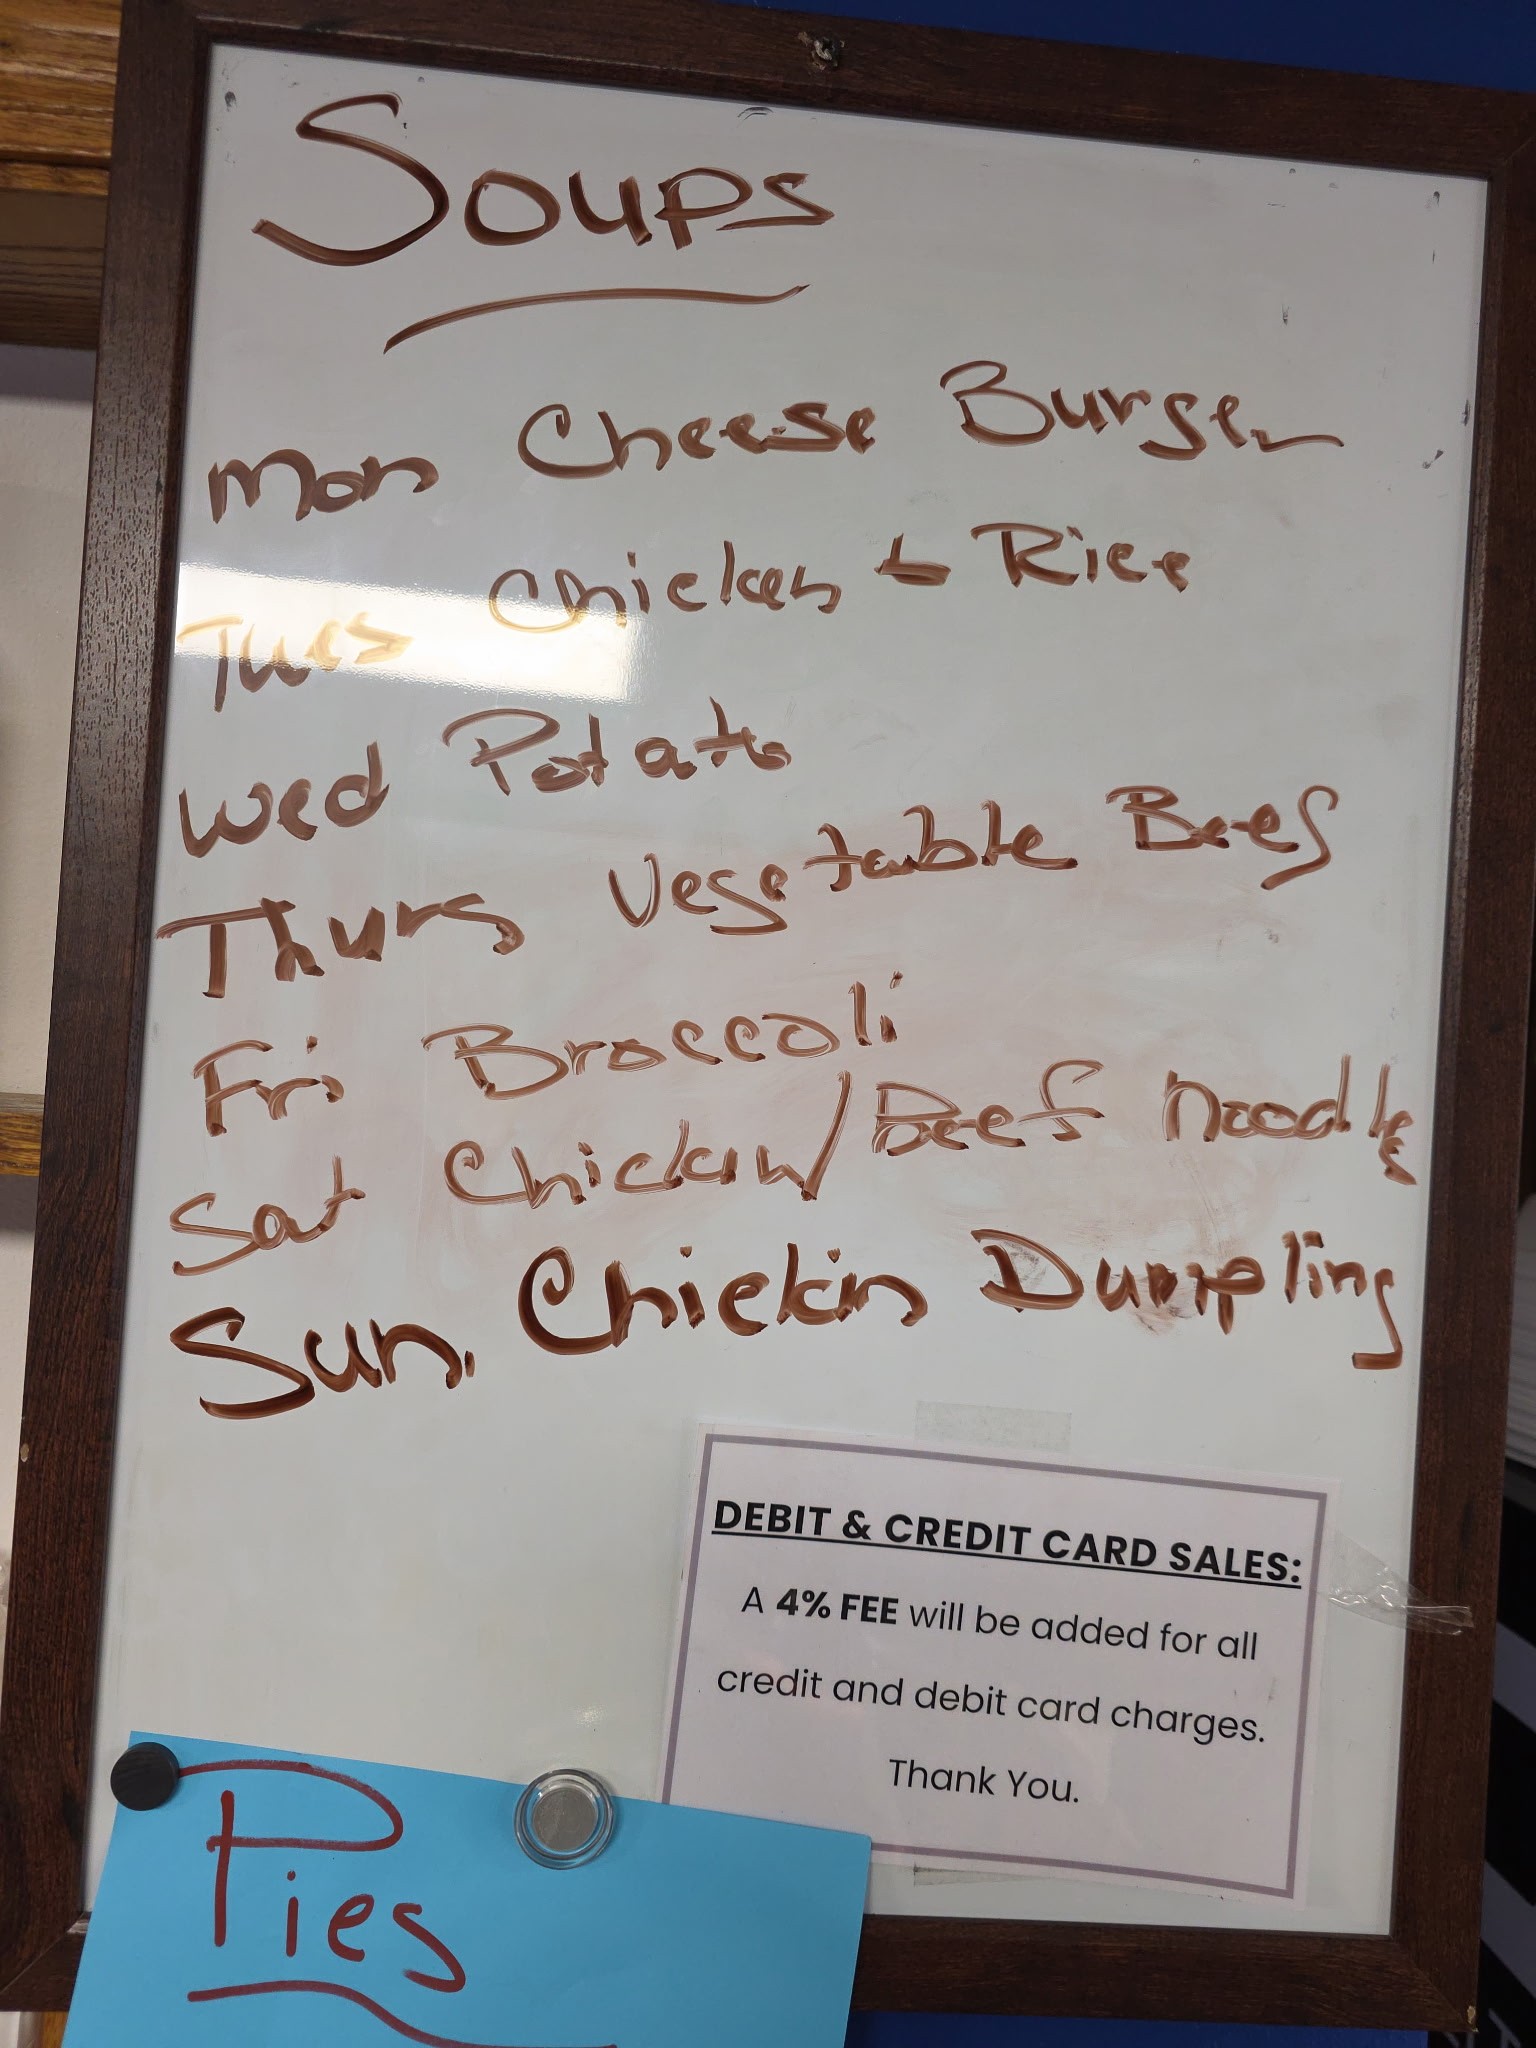 Soups
Mon Cheese Burger
Tues Chicken & Rice
Wed Potato
Thurs Vegetable Beef
Fri Broccoli
Sat Chicken/Beef Noodles
Sun. Chicken Dumpling
DEBIT & CREDIT CARD SALES:
A 4% FEE will be added for all
credit and debit card charges.
Thank You.
Pies